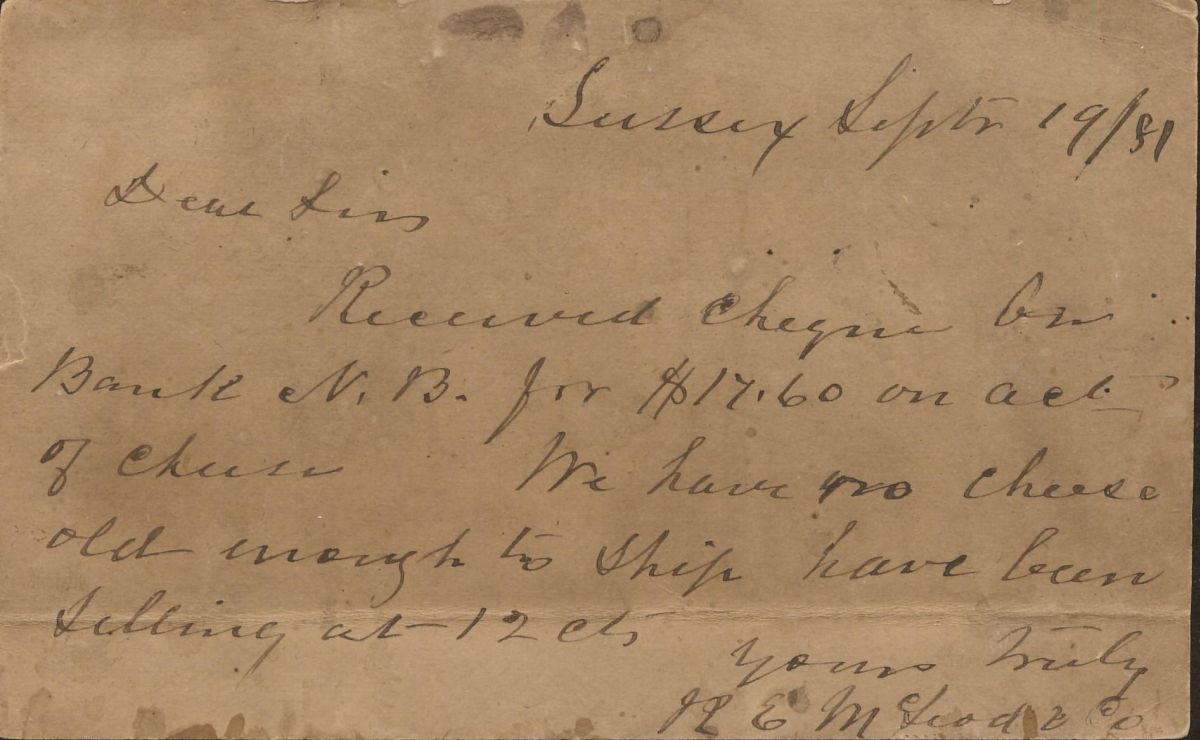 Sussex Septr 19/81
Dear Sirs
Received cheque on
Bank N. B. for $17.60 on act
of cheese We have no cheese
old enough to ship have been
selling at 12 cts
yours truly
R E McLeod & Co